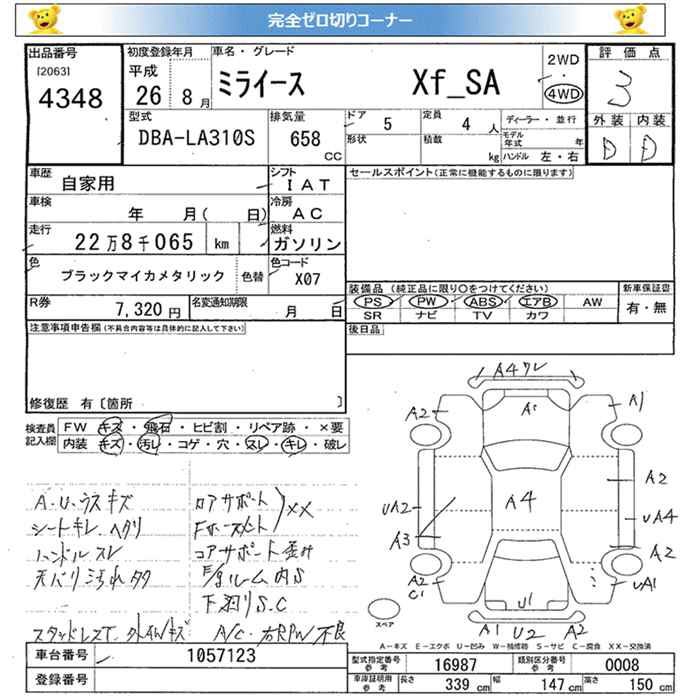 完全ゼロ切りコーナー
出品番号
[2063]
4348
初度登録年月
平成
26 8月
車名・グレード
ミライース Xf_SA
2WD
・
4WD
評価点
3
外装 内装
D D
型式
DBA-LA310S
排気量
658
CC
ドア
5
定員
4人
ディーラー・並行
形状
積載
kg
モデル年式 年
ハンドル 左・右
車歴
自家用
シフト
IAT
車検
年 月( 日)
冷房
AC
走行
22万8千065 km
燃料
ガソリン
色
ブラックマイカメタリック
色替
色コード
X07
R券
7,320円
名変通知期限
月 日
セールスポイント(正常に機能するものに限ります)
装備品 (純正品に限り〇をつけてください)
PS PW ABS エアB AW
SR ナビ TV カワ
新車保証書
有・無
後日品
注意事項申告欄(不具合内容等は具体的に記入して下さい)
修復歴 有〔箇所 〕
検査員記入欄
FW キズ・飛石・ヒビ割・リペア跡・×要
内装 キズ・汚レ・コゲ・穴・スレ・キレ・破レ
A・U・ウスキズ
シートキレ ヘタリ
ハンドルスレ
天バリ汚れタク
コアサポート歪み
下廻りS.C
A/C・右PW不良
XX
A1
A2
A1
A4
A2
UA2
UA4
A3
A2
A2
C1
UA1
U1
A1 U2 A2
スペア
A-キズ E-エクボ U-凹み W-補修跡 S-サビ C-腐食 XX-交換済
車台番号
1057123
署名番号
型式指定番号
参考
16987
類別区分番号
参考
0008
車庫証明用
参考
長さ 339cm
幅 147cm
高さ 150cm